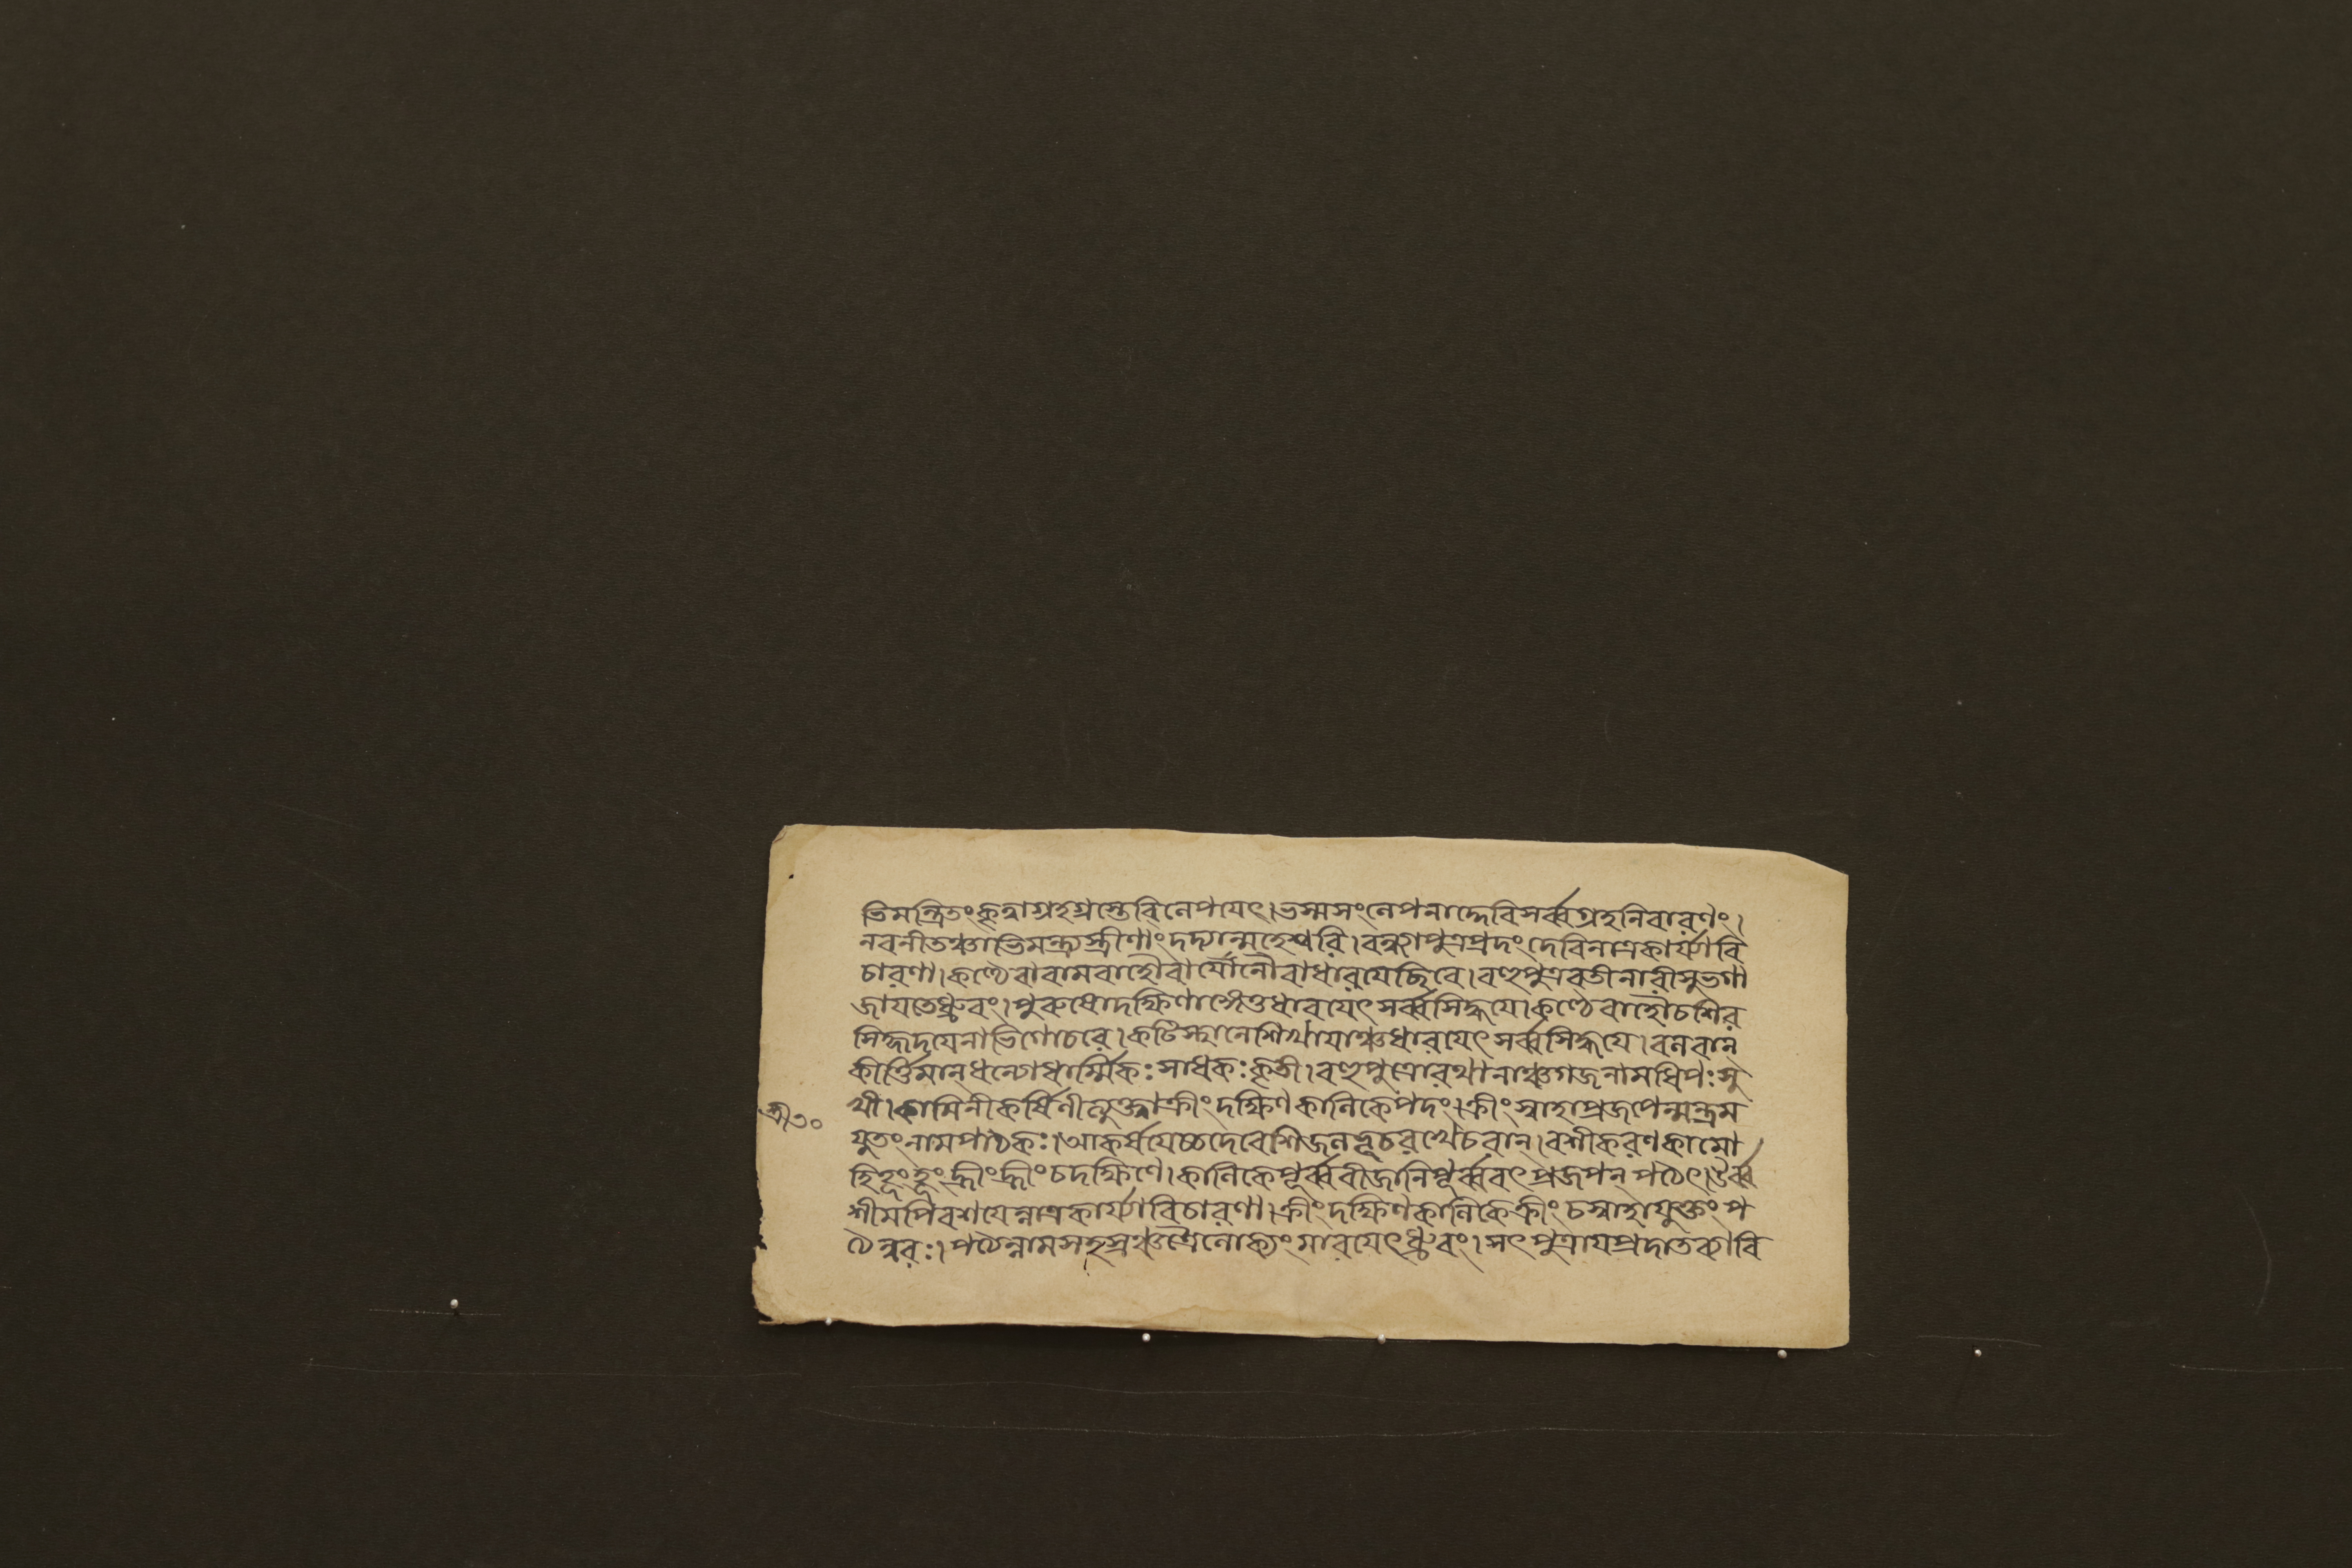 ভিমন্ত্রিতং কৃত্বা গ্রহগ্রস্তে বিলেপয়েৎ। ভস্মসংলেপনাদ্দেবি সর্ব্বগ্রহনিবারণং।
নবনীতঞ্চাভিমন্ত্র্য স্ত্রীণাং দদ্যান্মহেশ্বরি। বন্ধ্যাপুত্রপ্রদং দেবি নাত্র কার্য্যা বি
চারণা। কণ্ঠে বা বামবাহৌ বা যোনৌ বা ধারয়েচ্ছিবে। বহুপুত্রবতী নারী সুভগা
জায়তে ধ্রুবং। পুরুষো দক্ষিণাঙ্গে তু ধারয়েৎ সর্ব্বসিদ্ধয়ে। কণ্ঠে বাহৌ চ শির
সি হৃদয়ে নাভিগোচরে। কটিস্থানে শিখায়াঞ্চ ধারয়েৎ সর্ব্বসিদ্ধয়ে। বলবান্
কীর্ত্তিমান্ ধন্যো ধার্ম্মিকঃ সাধকঃ কৃতী। বহুপুত্রো রথানাঞ্চ গজানামধিপঃ সু
খী। কামিনীকর্ষিণীমুক্ত্বা ক্রীং দক্ষিণকালিকে পদং। ক্রীং স্বাহা প্রজপেন্মন্ত্রম
যুতং নামপাঠকঃ। আকর্ষয়েচ্চ দেবেশি জলভূচরখেচরান্। বশীকরণকামো
হি হূং হূং হ্রীং হ্রীং চ দক্ষিণে। কালিকে পূর্ব্ববীজানি পূর্ব্ববৎ প্রজপন্ পঠেৎ। উর্ব্ব
শীমপি বশয়েন্নাত্র কার্য্যা বিচারণা। ক্রীং দক্ষিণকালিকে ক্রীং চ স্বাহা যুক্তং প
ঠেন্নরঃ। পঠেন্নামসহস্রঞ্চ ত্রৈলোক্যং মারয়েৎ ধ্রুবং। সৎপুত্রায় প্রদাতব্যা বি